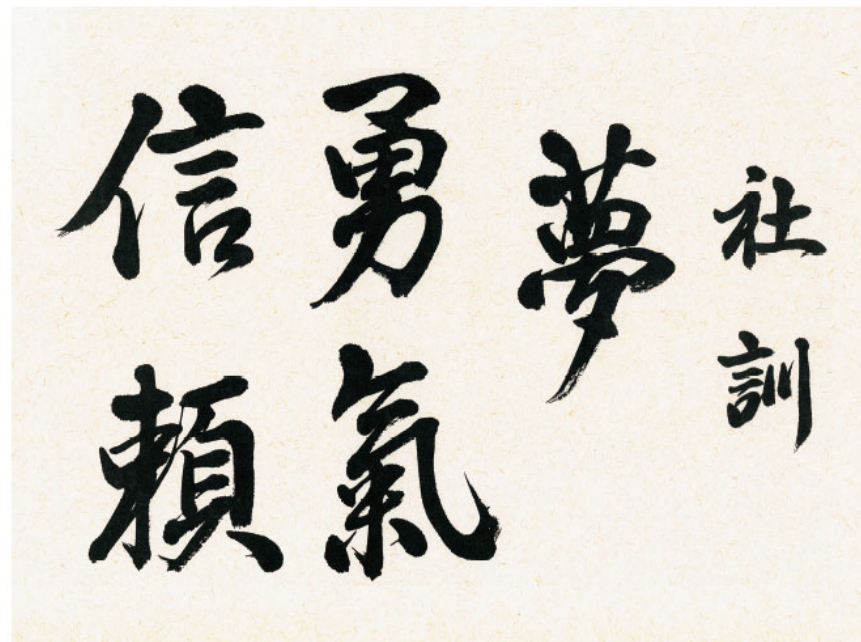 社訓
夢
勇氣
信頼